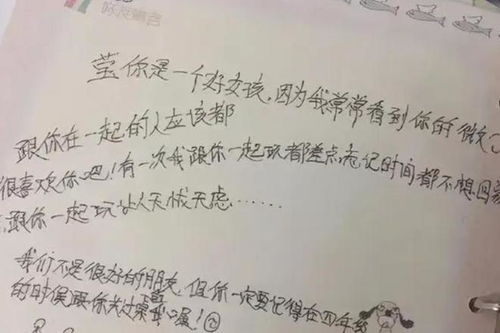 莹,你是一个好女孩,因为我常常看到你的微笑
跟你在一起的人应该都
很喜欢你吧!有一次我跟你一起玩都差点忘记时间都不想回家
,跟你一起玩让人无忧无虑……
我们不是很好的朋友,但你一定要记得在四年级
的时候跟你